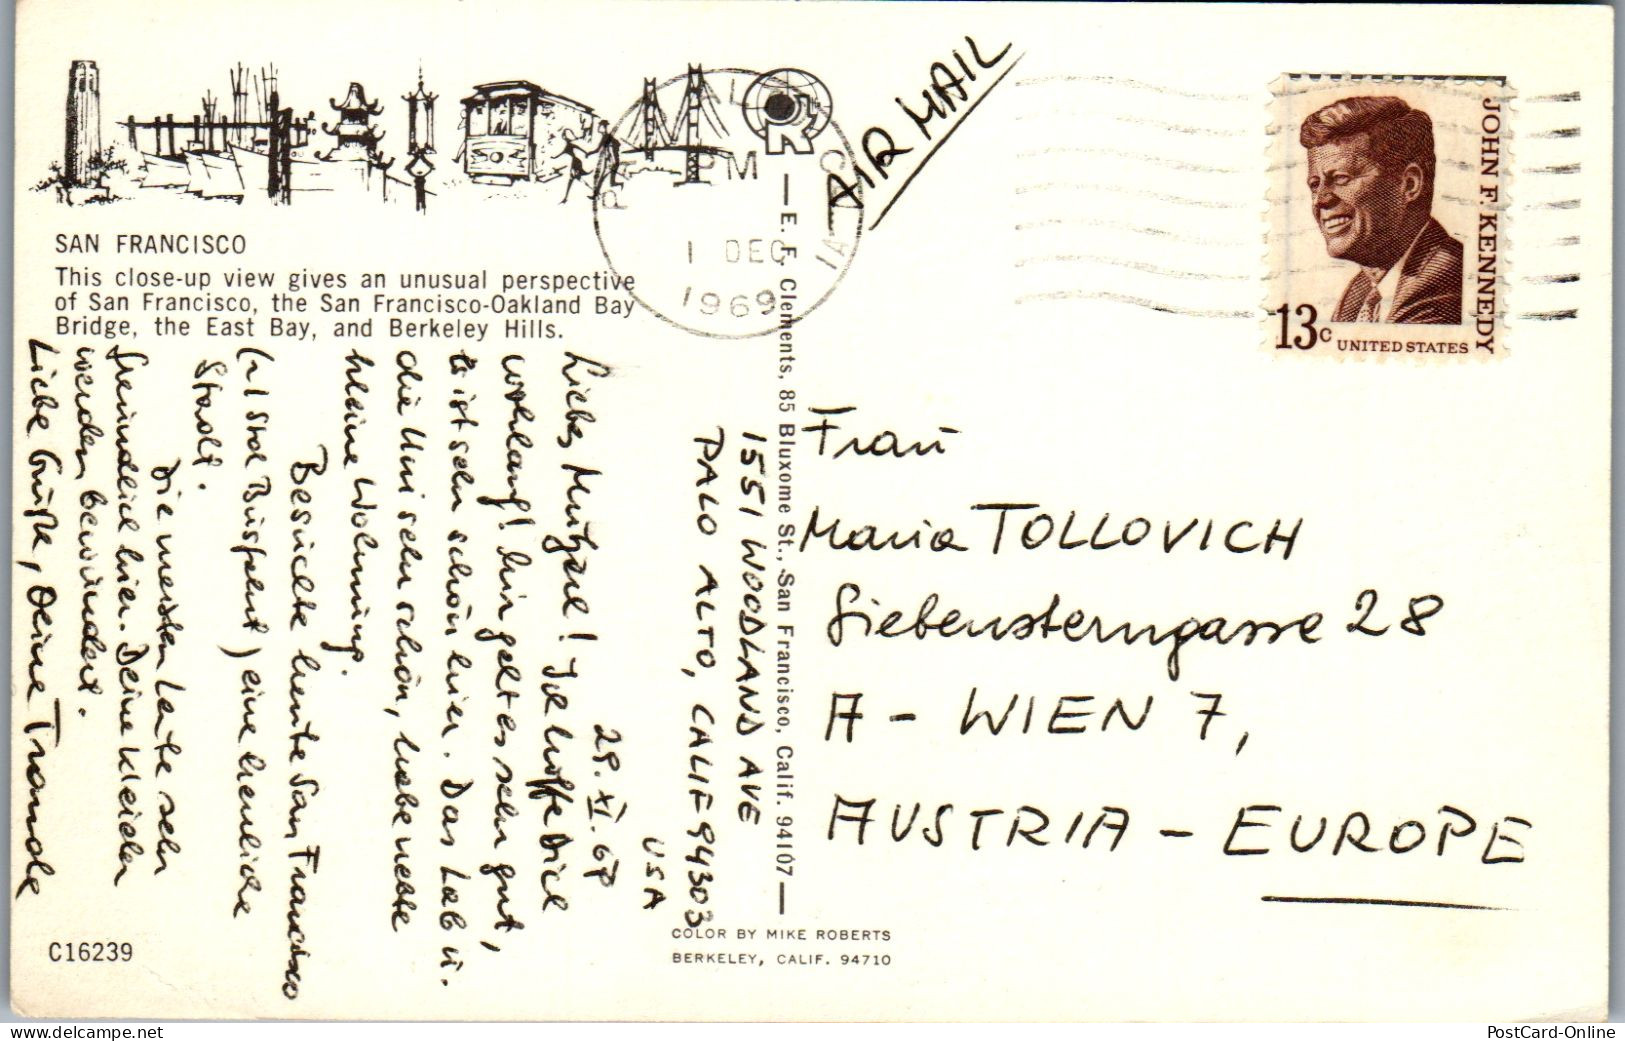 SAN FRANCISCO
This close-up view gives an unusual perspective
of San Francisco, the San Francisco-Oakland Bay
Bridge, the East Bay, and Berkeley Hills.
PM
1 DEC
1969
AIR MAIL
JOHN F. KENNEDY
13c UNITED STATES
1551 WOODLAND AVE
PALO ALTO, CALIF 94303
USA
29. XI. 69
Liebes Mutzerl! Ich hoffe Dich
wohlauf! Mir geht es sehr gut,
es ist sehr schön hier. Das Lab u.
die Uni sehr schön, habe nette
kleine Wohnung.
Besuchte heute San Francisco
(~1 Std Busfahrt) eine herrliche
Stadt.
Die meisten Leute sehr
freundlich hier. Deine Kleider
werden bewundert.
Liebe Grüße, Deine Traude
E. F. Clements, 85 Bluxome St., San Francisco, Calif. 94107
Frau
Maria TOLLOVICH
Siebensterngasse 28
A - WIEN 7,
AUSTRIA - EUROPE
C16239
COLOR BY MIKE ROBERTS
BERKELEY, CALIF. 94710
http://www.delcampe.net
PostCard-Online